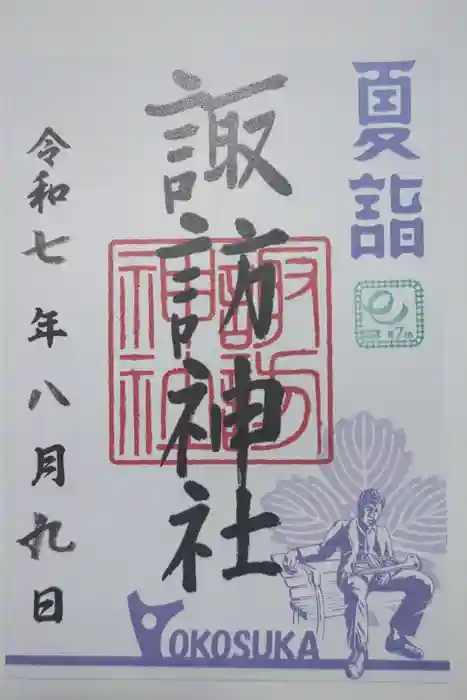 夏詣
諏訪神社
諏訪神社
令和七年八月九日
YOKOSUKA